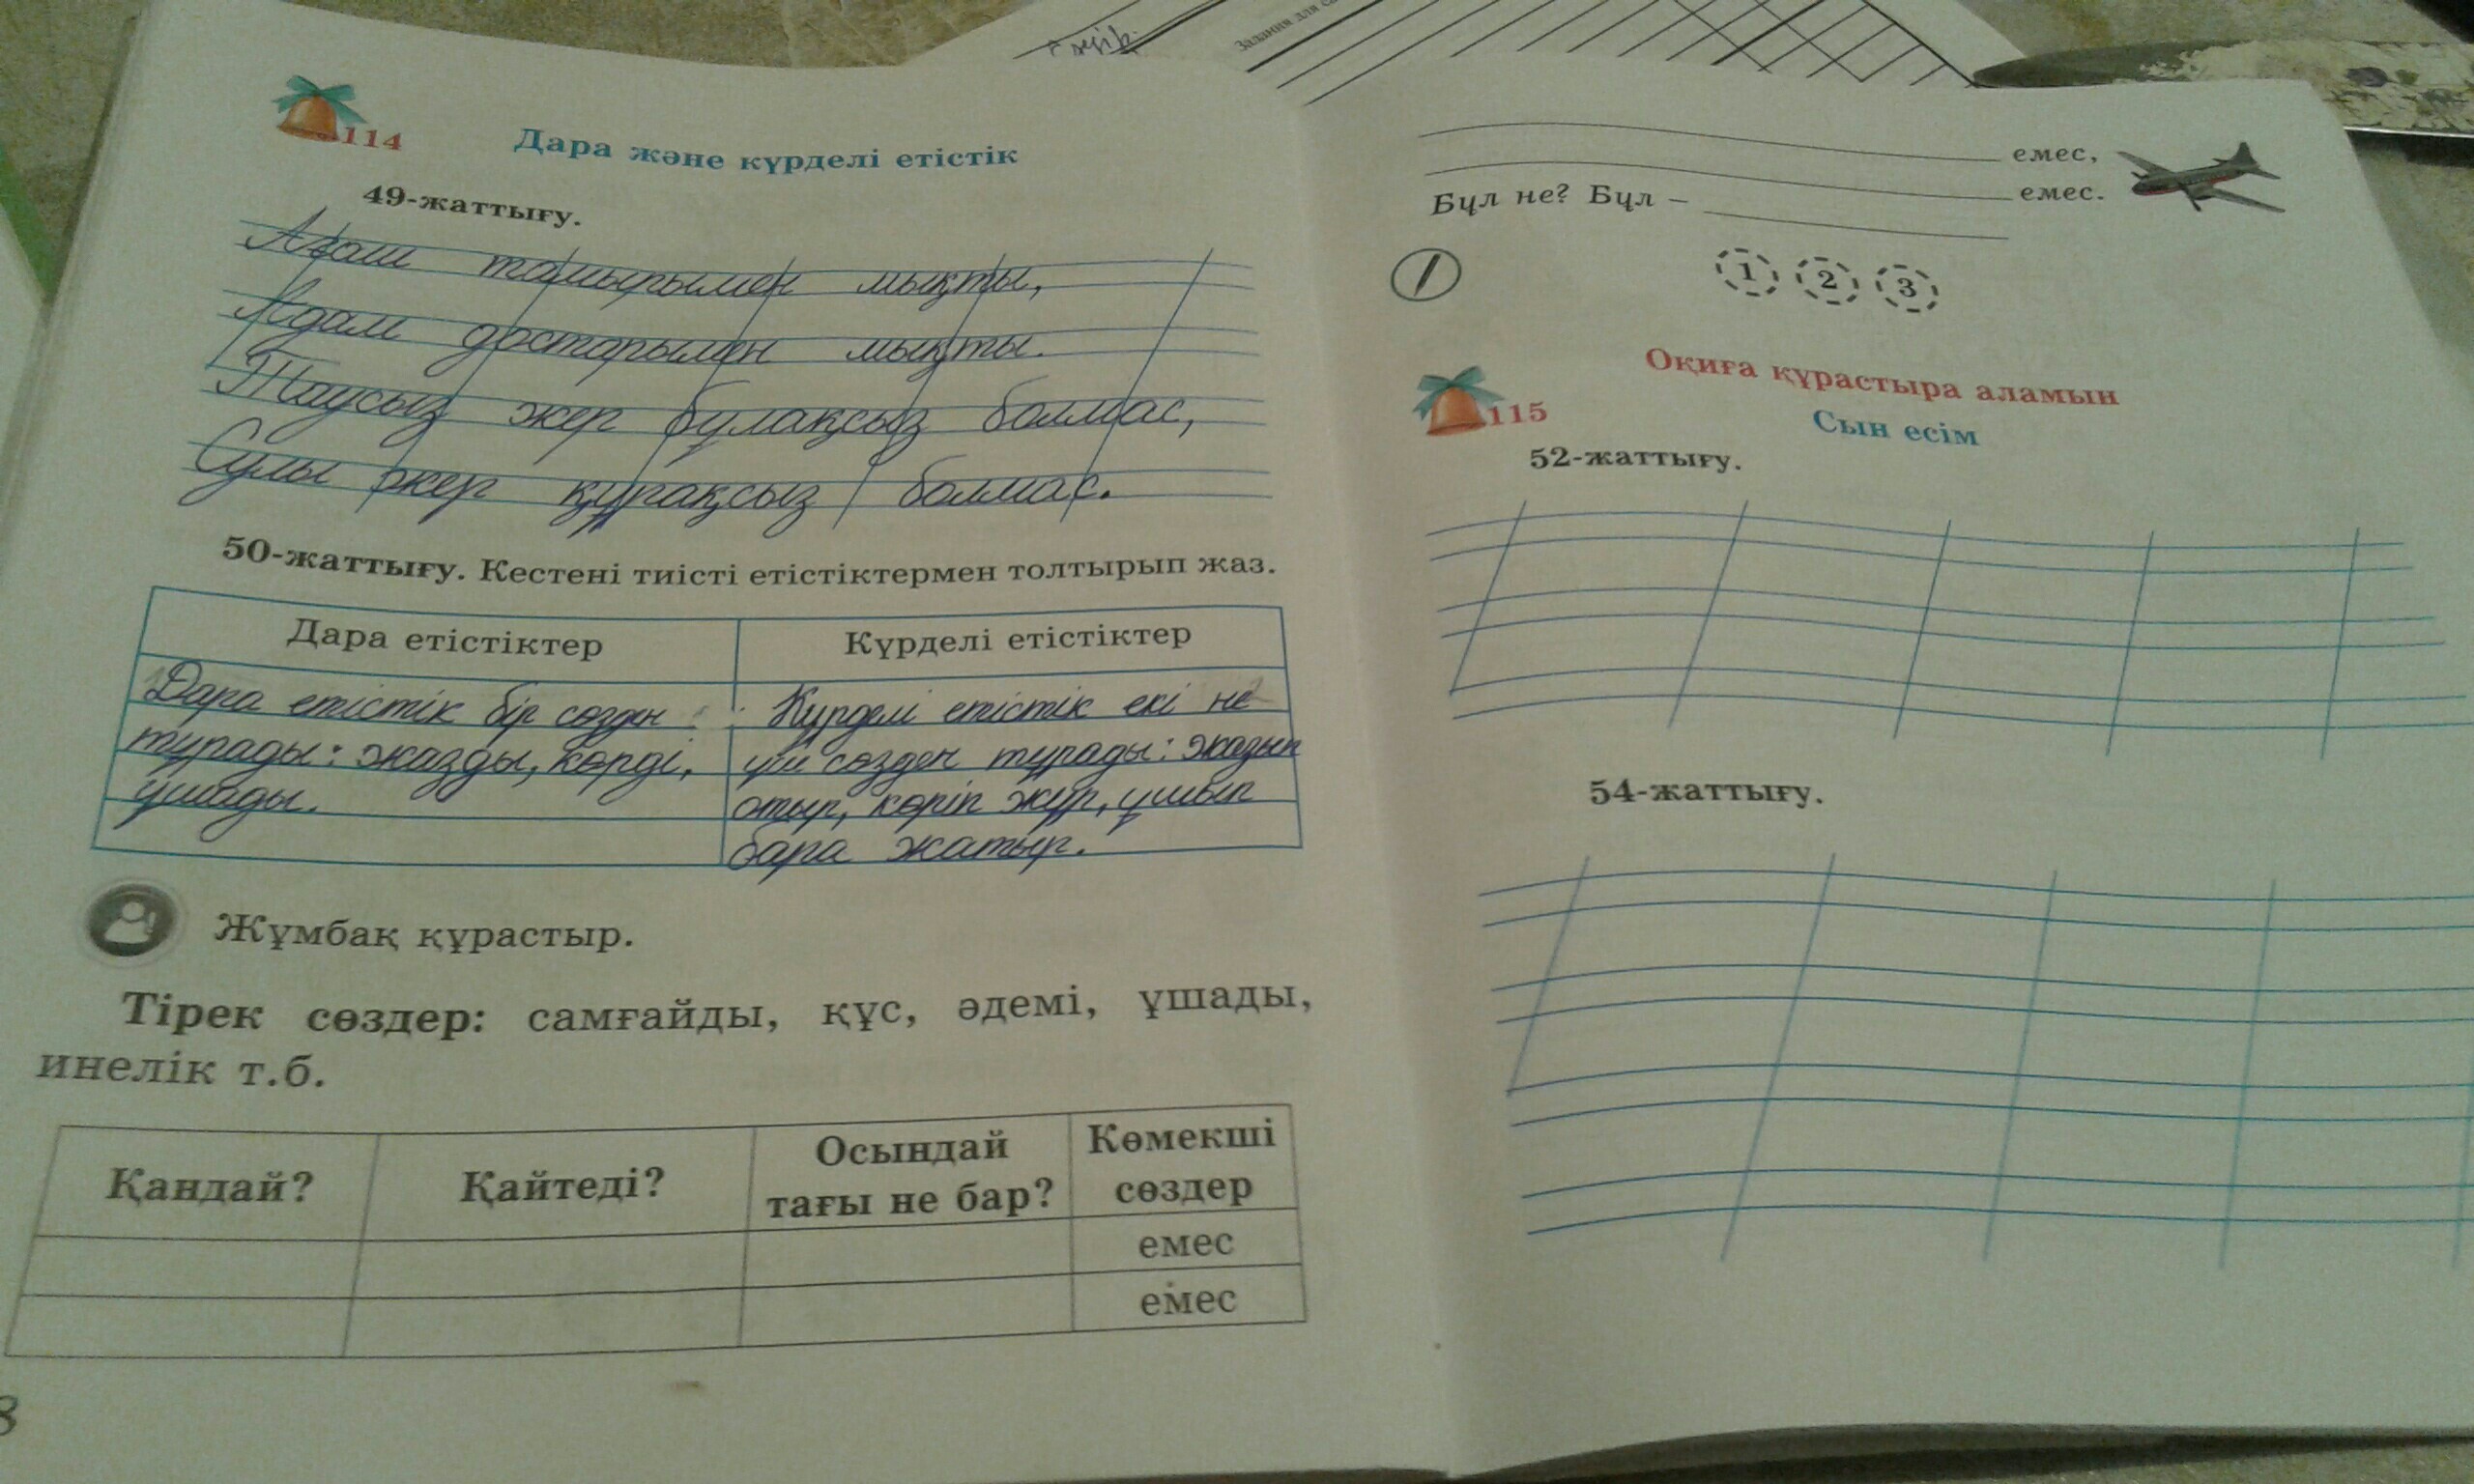 Задания для
114 Дара және күрделі етістік
49-жаттығу.
Ағаш тамырымен мықты,
Адам достарымен мықты.
Таусыз жер бұлақсыз болмас,
Сулы жер құрақсыз болмас.
50-жаттығу. Кестені тиісті етістіктермен толтырып жаз.
Дара етістіктер
Күрделі етістіктер
Дара етістік бір сөзден
тұрады: жазды, көрді,
ұшады.
Күрделі етістік екі не
үш сөзден тұрады: жазып
отыр, көріп жүр, ұшып
бара жатыр.
Жұмбақ құрастыр.
Тірек сөздер: самғайды, құс, әдемі, ұшады,
инелік т.б.
Қандай? Қайтеді? Осындай тағы не бар? Көмекші сөздер
емес
емес
8
емес,
емес.
Бұл не? Бұл –
1 2 3
Оқиға құрастыра аламын
115 Сын есім
52-жаттығу.
54-жаттығу.